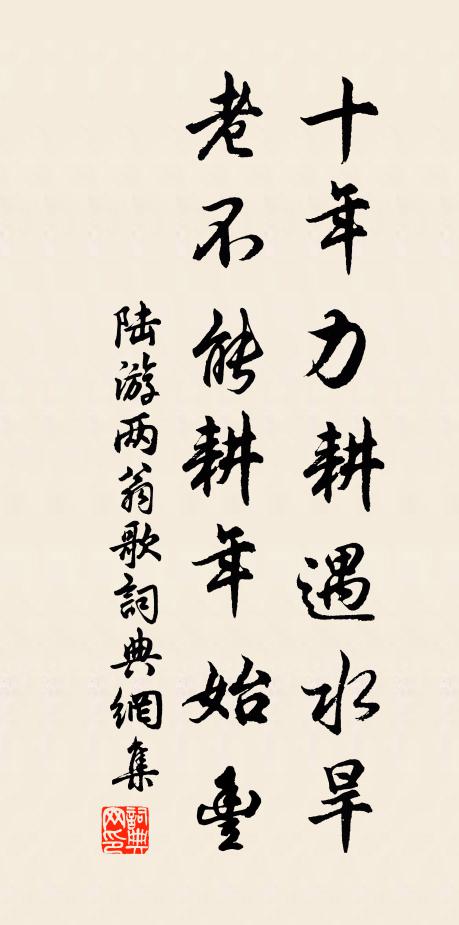 十年力耕遇水旱
老不能耕年始豐
陆游两翁歌詞典網集
詞典网印